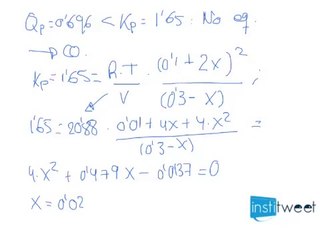 Qp = 0'696 < Kp = 1'65 . No eq.
→ CO.
Kp = 1'65 = R.T / V . (0'1 + 2x)² / (0'3 - x) ;
1'65 = 20'88 . 0'01 + 4x + 4.x² / (0'3 - x) =
4.x² + 0'479x - 0'0137 = 0
x = 0'02
institweet